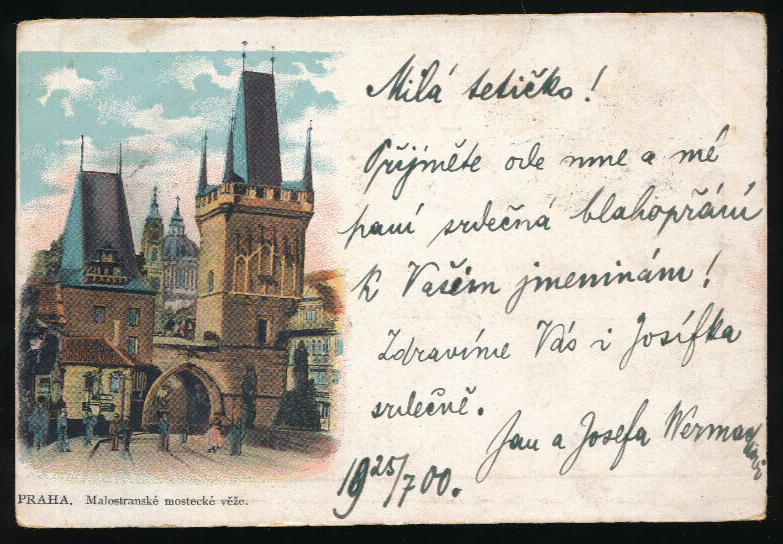 Milá tetičko!
Přijměte ode mne a mé
paní srdečná blahopřání
k Vašim jmeninám!
Zdravíme Vás i Josífka
srdečně.
Jan a Josefa
25/7 00.
PRAHA. Malostranské mostecké věže.